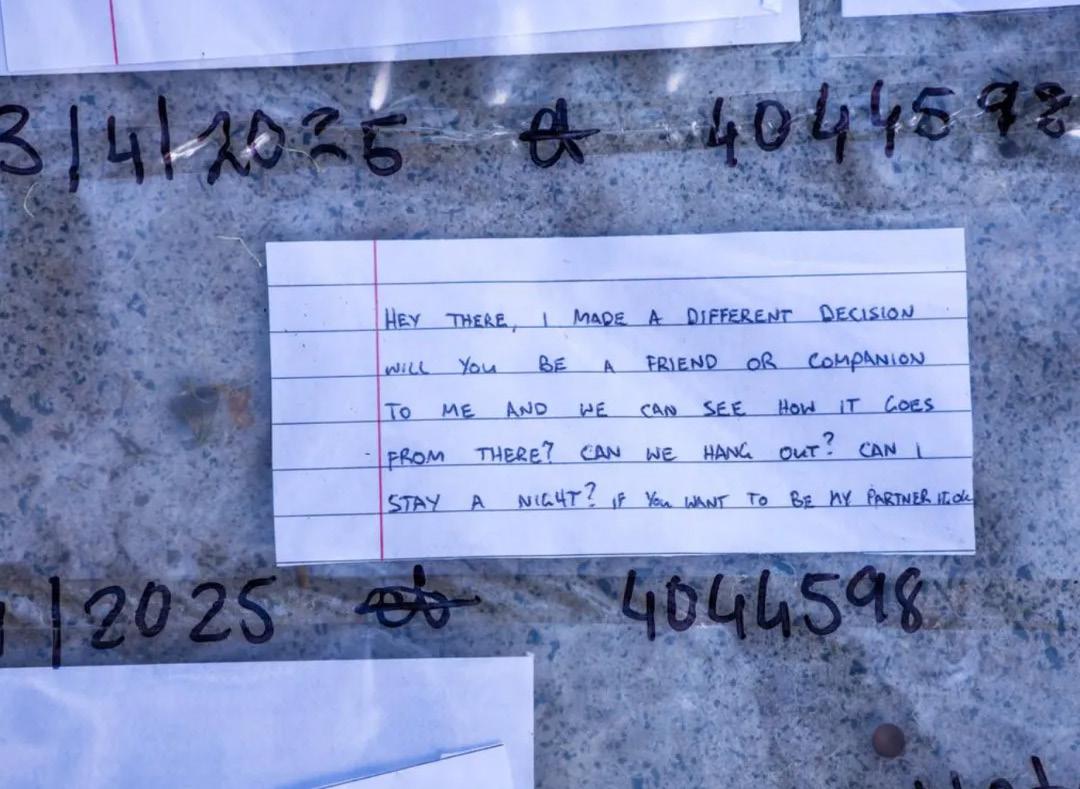 3/4/2025 a 4044598
HEY THERE, I MADE A DIFFERENT DECISION
WILL YOU BE A FRIEND OR COMPANION
TO ME AND WE CAN SEE HOW IT GOES
FROM THERE? CAN WE HANG OUT? CAN I
STAY A NIGHT? IF YOU WANT TO BE MY PARTNER
/2025 4044598